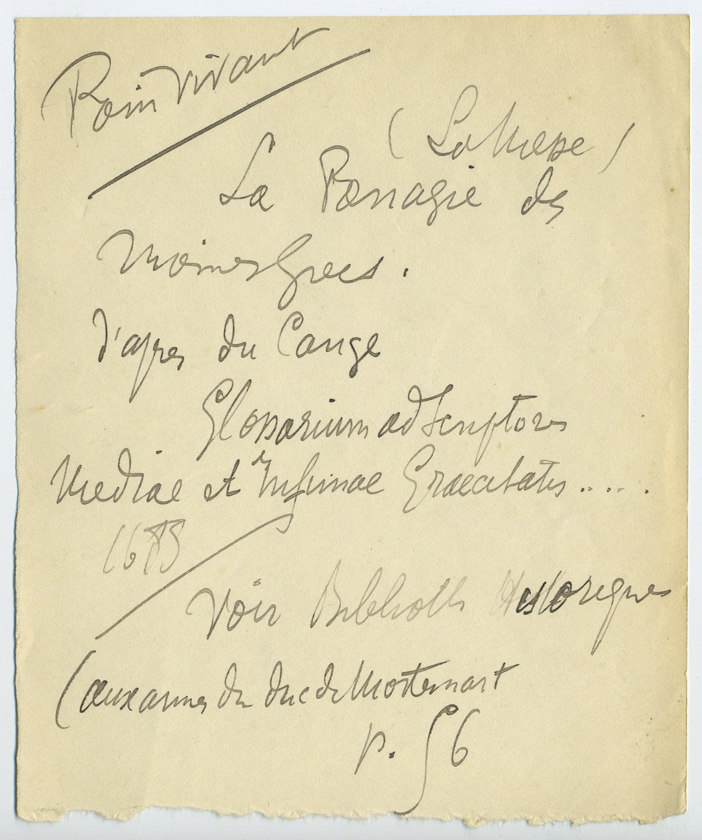 Pain vivant
(La Messe)
La Panagie des
moines Grecs.
d'apres du Cange
Glossarium ad Scriptores
Mediae et Infimae Graecitatis.....
1688
Voir Biblioth Historique
(aux armes du duc de Mortemart
p. 56